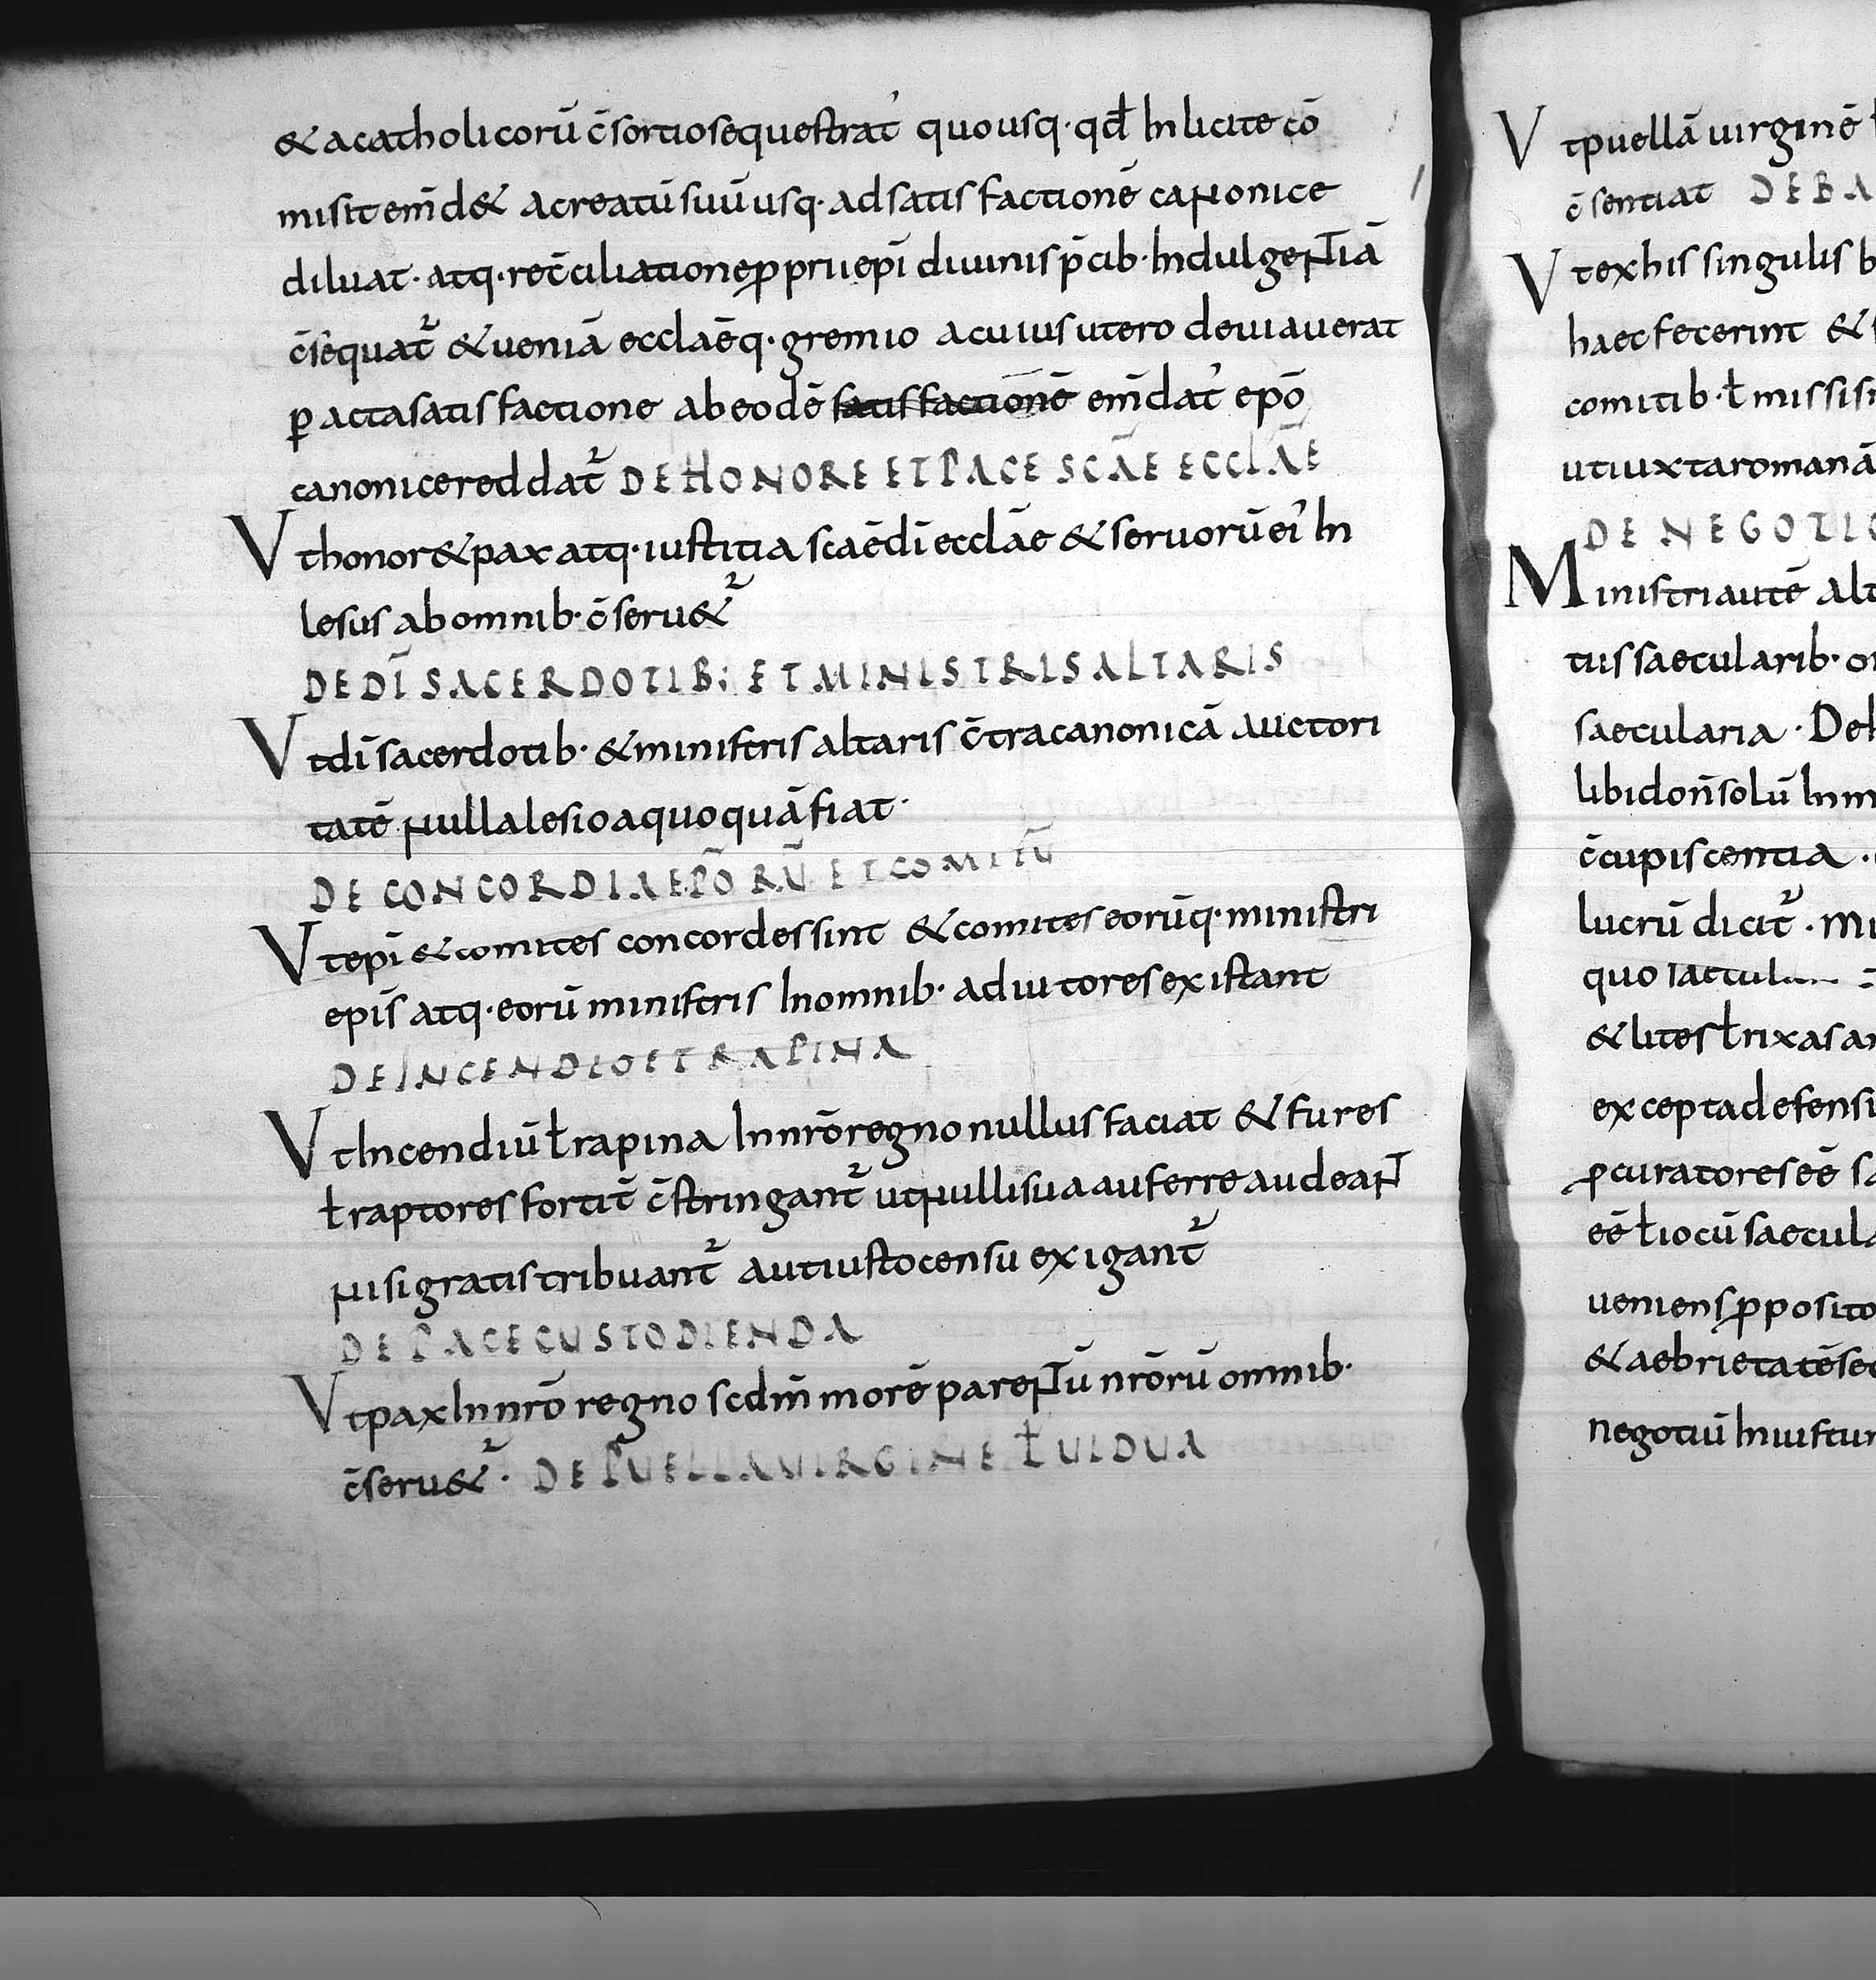 & a catholicorū c̄sortio sequestrat᾽ quousq· qđ Inlicite cō
misit em̄d& a creatū suū usq· ad satisfactionē canonice
diluat· atq· rec̄ciliatione ꝑ pprii ep̄i diuinis p̄cib· IndulgeNTiā
c̄sequat̄ & ueniā ecclaēq· gremio a cuius utero deuiauerat
ꝑacta satisfactione ab eodē satisfactionē em̄dat᾽ ep̄o
canonice reddat̄ DE HONORE ET PACE SCĀE ECCLĀE
Vt honor & pax atq· iustitia scaē dī ecclāe & seruorū ei᾽ In
lesus ab omnib· c̄seru&̄
DE DĪ SACERDOTIB; ET MINISTRIS ALTARIS
Vt dī sacerdotib· & ministris altaris c̄tra canonicā auctori
tatē Nulla lesio a quoquā fiat·
DE CONCORDIA EP̄ORŪ ET COMITŪ
Vt ep̄i & comites concordes sint & comites eorūq· ministri
ep̄is atq· eorū ministris In omnib· adiutores existant
DE INCENDIO ET RAPINA
Vt Incendiū ł rapina In nr̄o regno nullus faciat & fures
ł raptores fortit̄ c̄stringant̄ ut Nulli sua auferre audeaNT
Nisi gratis tribuant̄ aut iusto censu exigant̄
DE PACE CUSTODIENDA
Vt pax In nr̄o regno scdm̄ morē pareNTū nr̄orū omnib·
c̄seru&̄· DE PUELLA VIRGINE ł UIDUA
Vt puellā uirginē
c̄sentiat DE BA
Vt ex his singulis b
haec fecerint &
comitib· ł missis
ut iuxta romanā
DE NEGOTIO
Ministri autē alt
tus saecularib· o
saecularia · De
libido n̄ solū In
c̄cupiscentia ·
lucrū dicit̄ · M
quo
& lites ł rixas a
excepta defensi
ꝓcuratores eē s
eē ł iocū saecula
ueniens ꝓposito
& aebrietatē se
negotiū In